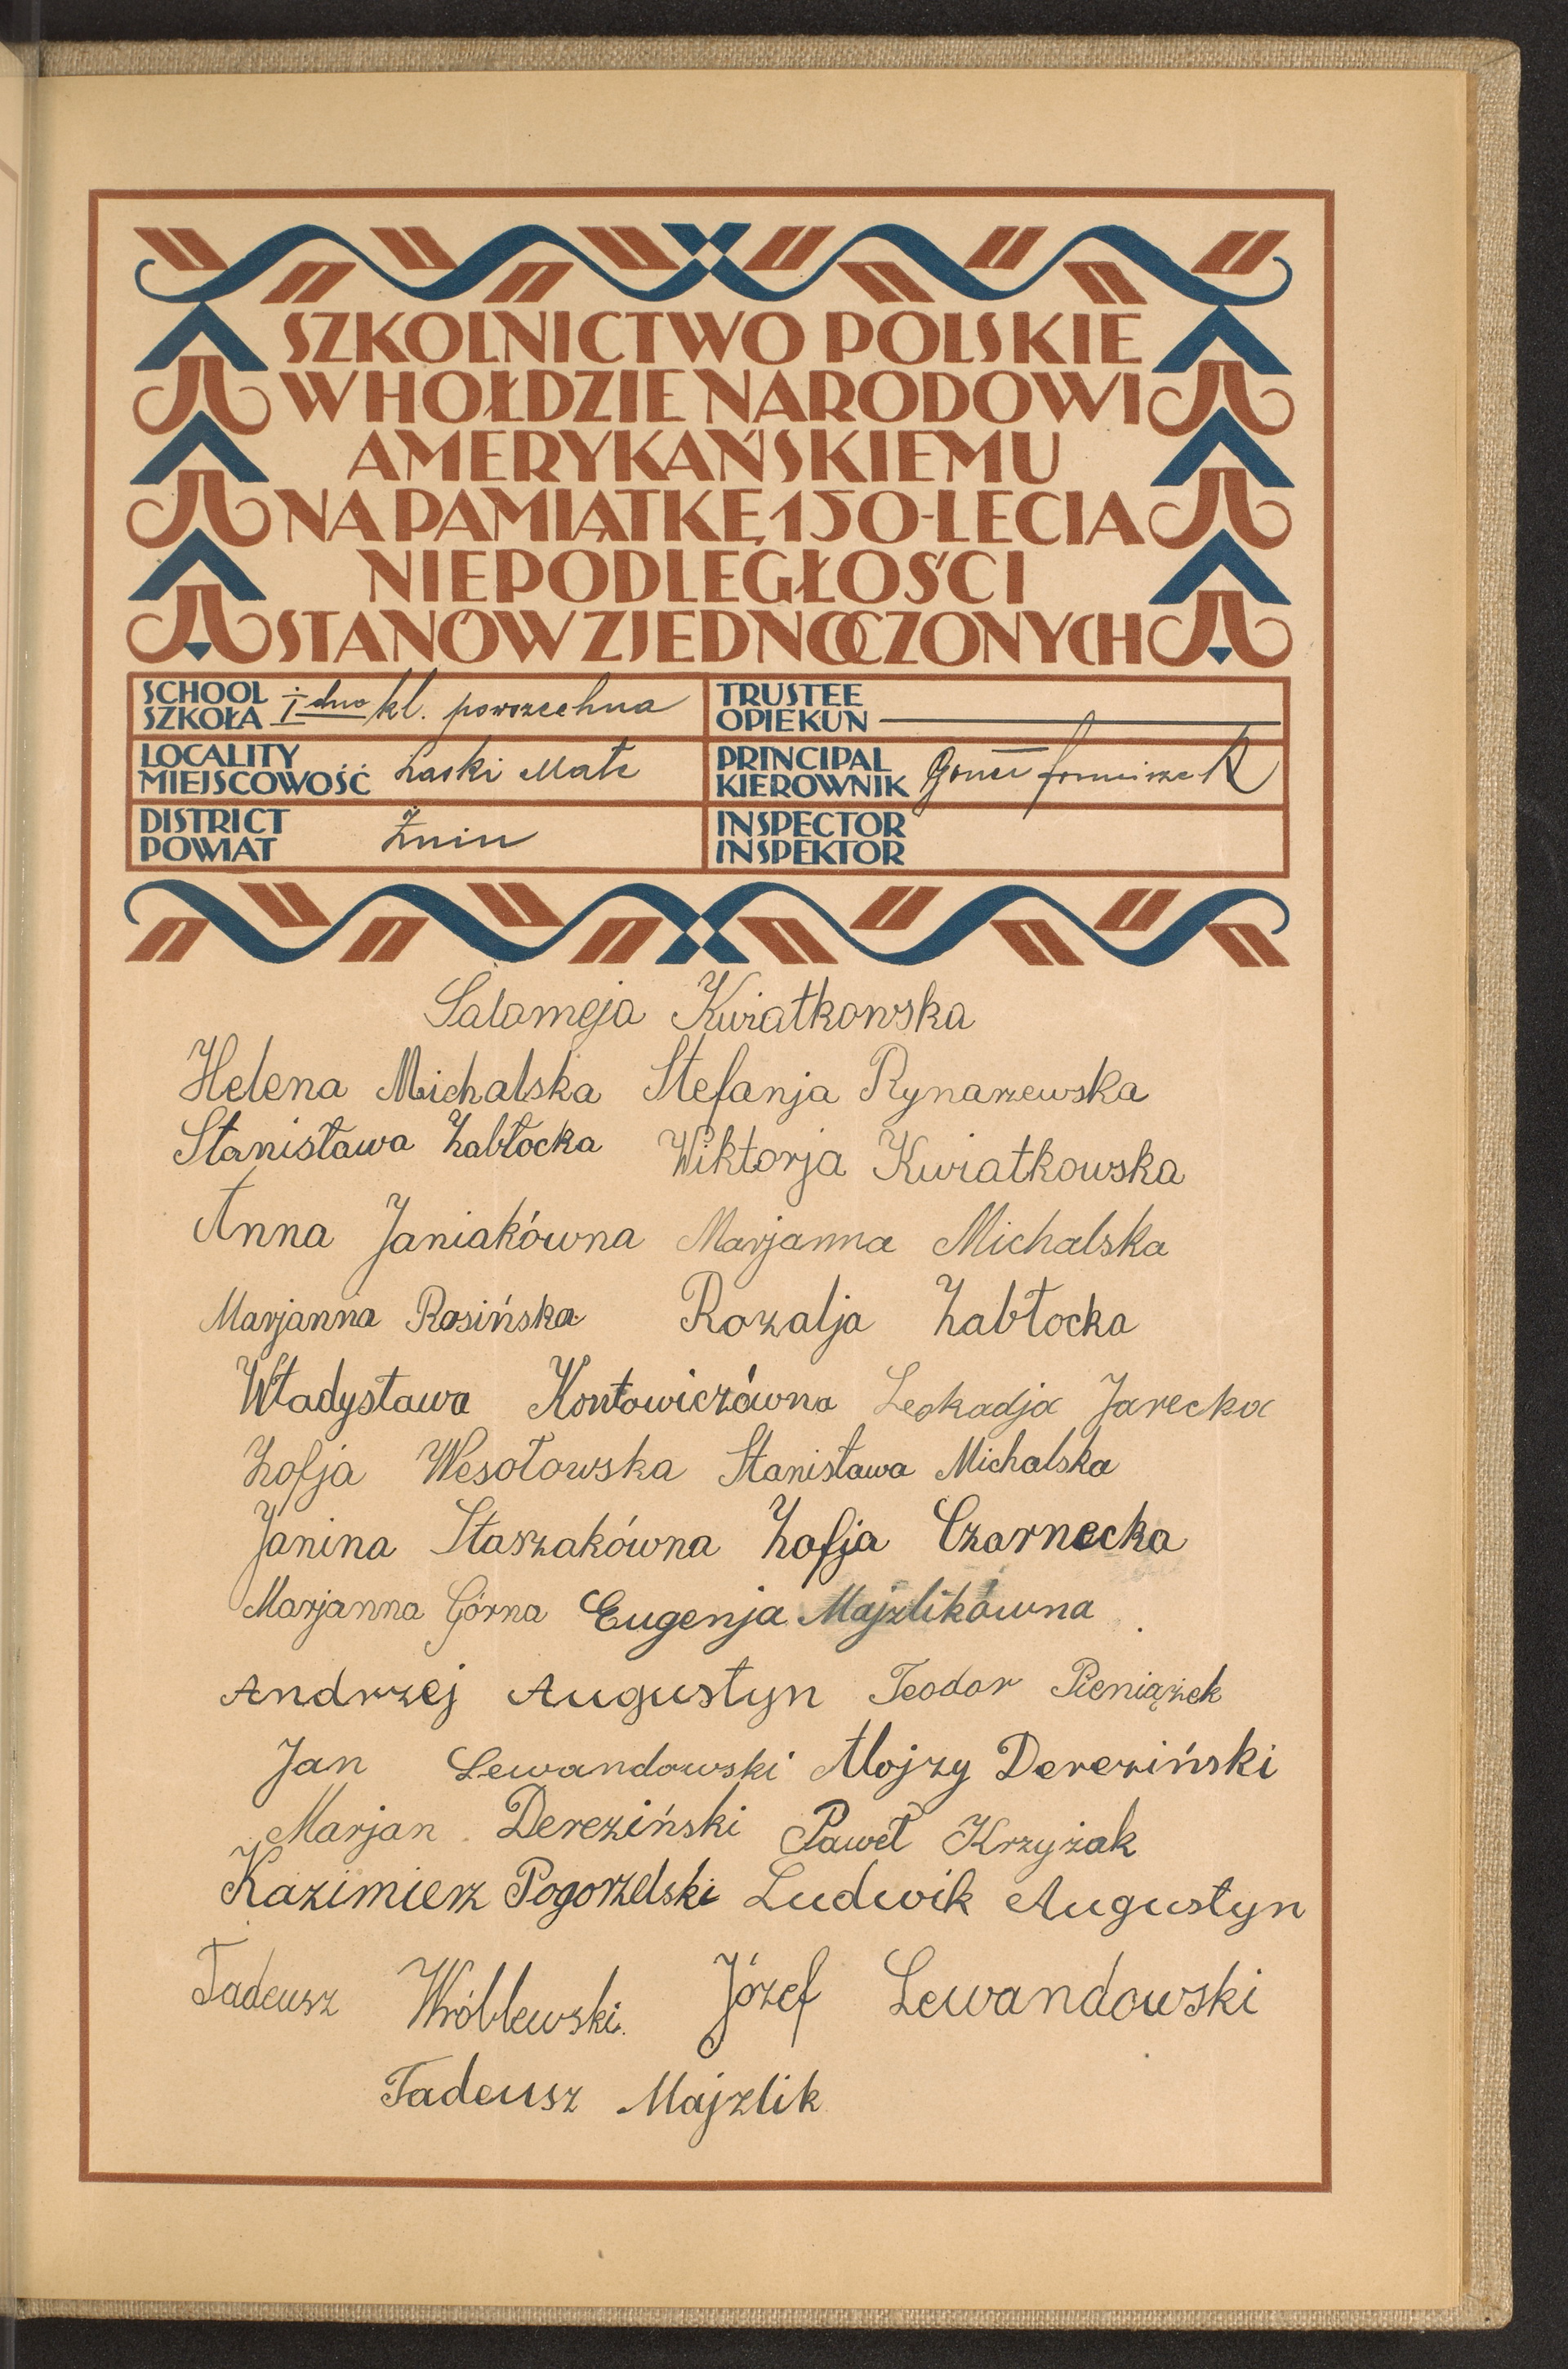 SZKOLNICTWO POLSKIE
W HOŁDZIE NARODOWI
AMERYKAŃSKIEMU
NA PAMIĄTKĘ 150-LECIA
NIEPODLEGŁOŚCI
STANÓW ZJEDNOCZONYCH
SCHOOL
SZKOŁA I dno kl. powszechna
TRUSTEE
OPIEKUN
LOCALITY
MIEJSCOWOŚĆ Laski Małe
PRINCIPAL
KIEROWNIK
DISTRICT
POWIAT Żnin
INSPECTOR
INSPEKTOR
Salomeja Kwiatkowska
Helena Michalska Stefanja Rynarzewska
Stanisława Zabłocka Wiktorja Kwiatkowska
Anna Janiakówna Marjanna Michalska
Marjanna Rosińska Rozalja Zabłocka
Władysława Kontowiczówna Leokadja Jarecka
Zofja Wesołowska Stanisława Michalska
Janina Staszakówna Zofja Czarnecka
Marjanna Górna Eugenja Majzlikówna
Andrzej Augustyn Teodor Pieniążek
Jan Lewandowski Alojzy Dereziński
Marjan Dereziński Paweł Krzyżak
Kazimierz Pogorzelski Ludwik Augustyn
Tadeusz Wróblewski. Józef Lewandowski
Tadeusz Majzlik